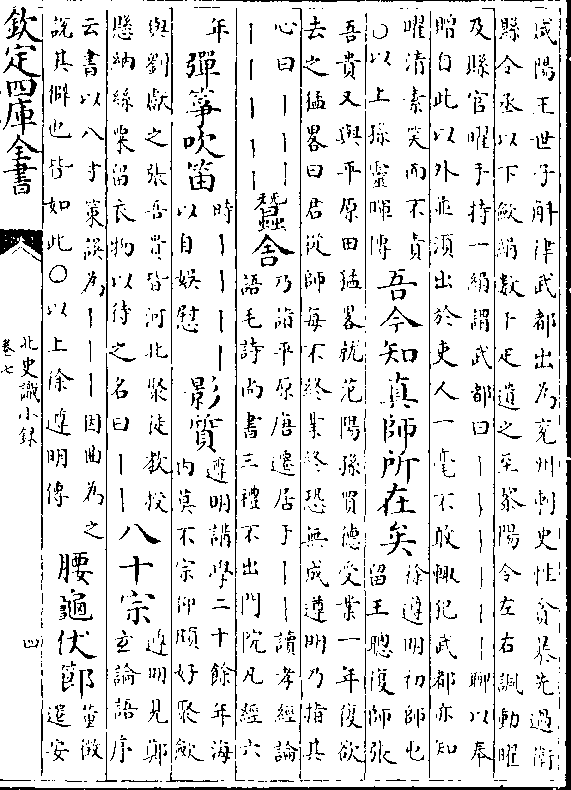 咸陽王世子斛律武都出為兖州刺史性貪暴先過衛
縣令丞以下歛絹數千疋遺之至黎陽令左右諷動曜
及縣官曜手持一絹謂武都曰丨丨丨丨丨丨聊以奉
贈自此以外並須出於吏人一毫不敢輒犯武都亦知
曜清素笑而不責
○以上孫靈暉傳
吾今知真師所在矣
徐遵明初師也
留王聰復師張
吾貴又與平原田猛畧就范陽孫買德受業一年復欲
去之猛畧曰君從師每不終業終恐無成遵明乃指其
心曰丨丨丨
丨丨丨丨丨
蠶舍
乃詣平原唐遷居于丨丨讀孝經論
語毛詩尚書三禮不出門院凡經六
年
彈箏吹笛
時丨丨丨丨
以自娛慰
影質
遵明講學二十餘年海
内莫不宗仰頗好聚歛
與劉獻之張吾貴皆河北聚徒教授
懸納絲粟留衣物以待之名曰丨丨
八十宗
遵明見鄭
玄論語序
云書以八寸策誤為丨丨丨因曲為之
說其僻也皆如此○以上徐遵明傳
腰龜伏節
董徵
選安
欽定四庫全書
北史識小録
卷七
四